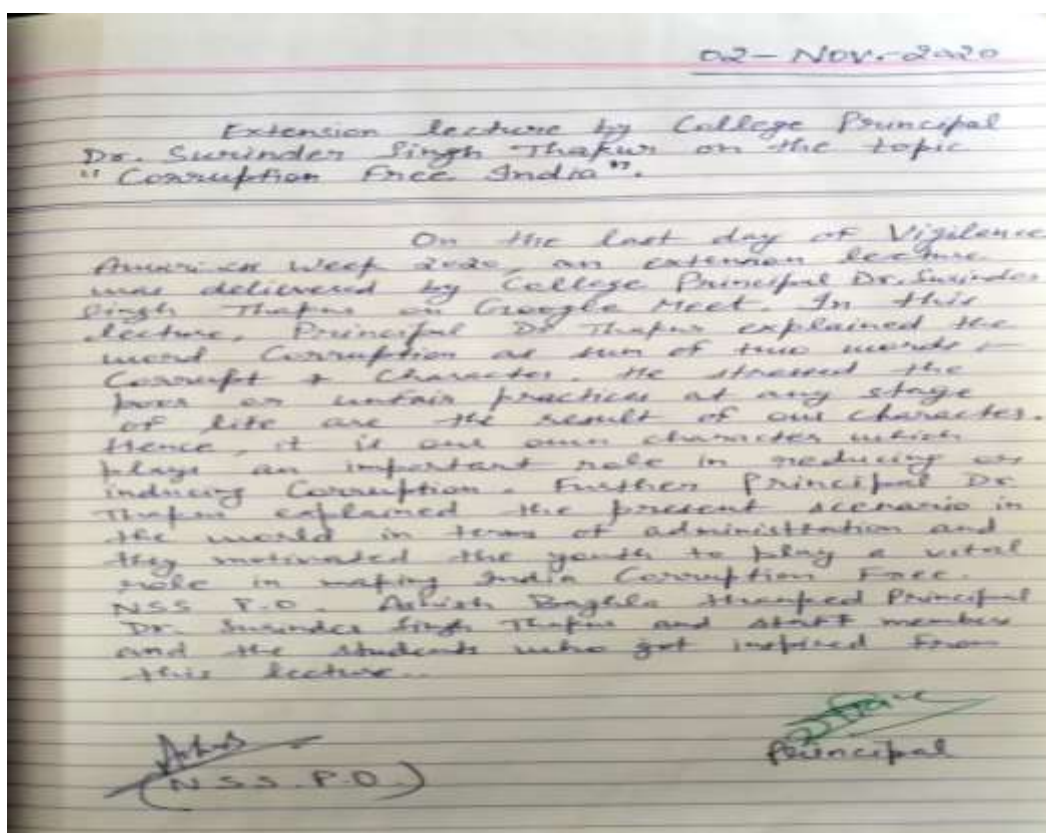 02-Nov.-2020
Extension lecture by College Principal
Dr. Surinder Singh Thakur on the topic
"Corruption Free India".
On the last day of Vigilence
Week 2020, an extension lecture
was delivered by College Principal Dr. Surinder
Singh Thakur on Google Meet. In this
lecture, Principal Dr Thakur explained the
word Corruption as sum of two words -
Corrupt + Character. He stressed the
or unfair practices at any stage
of life are the result of our character.
Hence, it is our own character which
plays an important role in reducing or
inducing Corruption. Further Principal Dr
Thakur explained the present scenario in
the world in terms of administration and
they motivated the youth to play a vital
role in making India Corruption Free.
NSS P.O. Ashish Baghla thanked Principal
Dr. Surinder Singh Thakur and staff members
and the students who got inspired from
this lecture..
Principal
(N.S.S. P.O.)